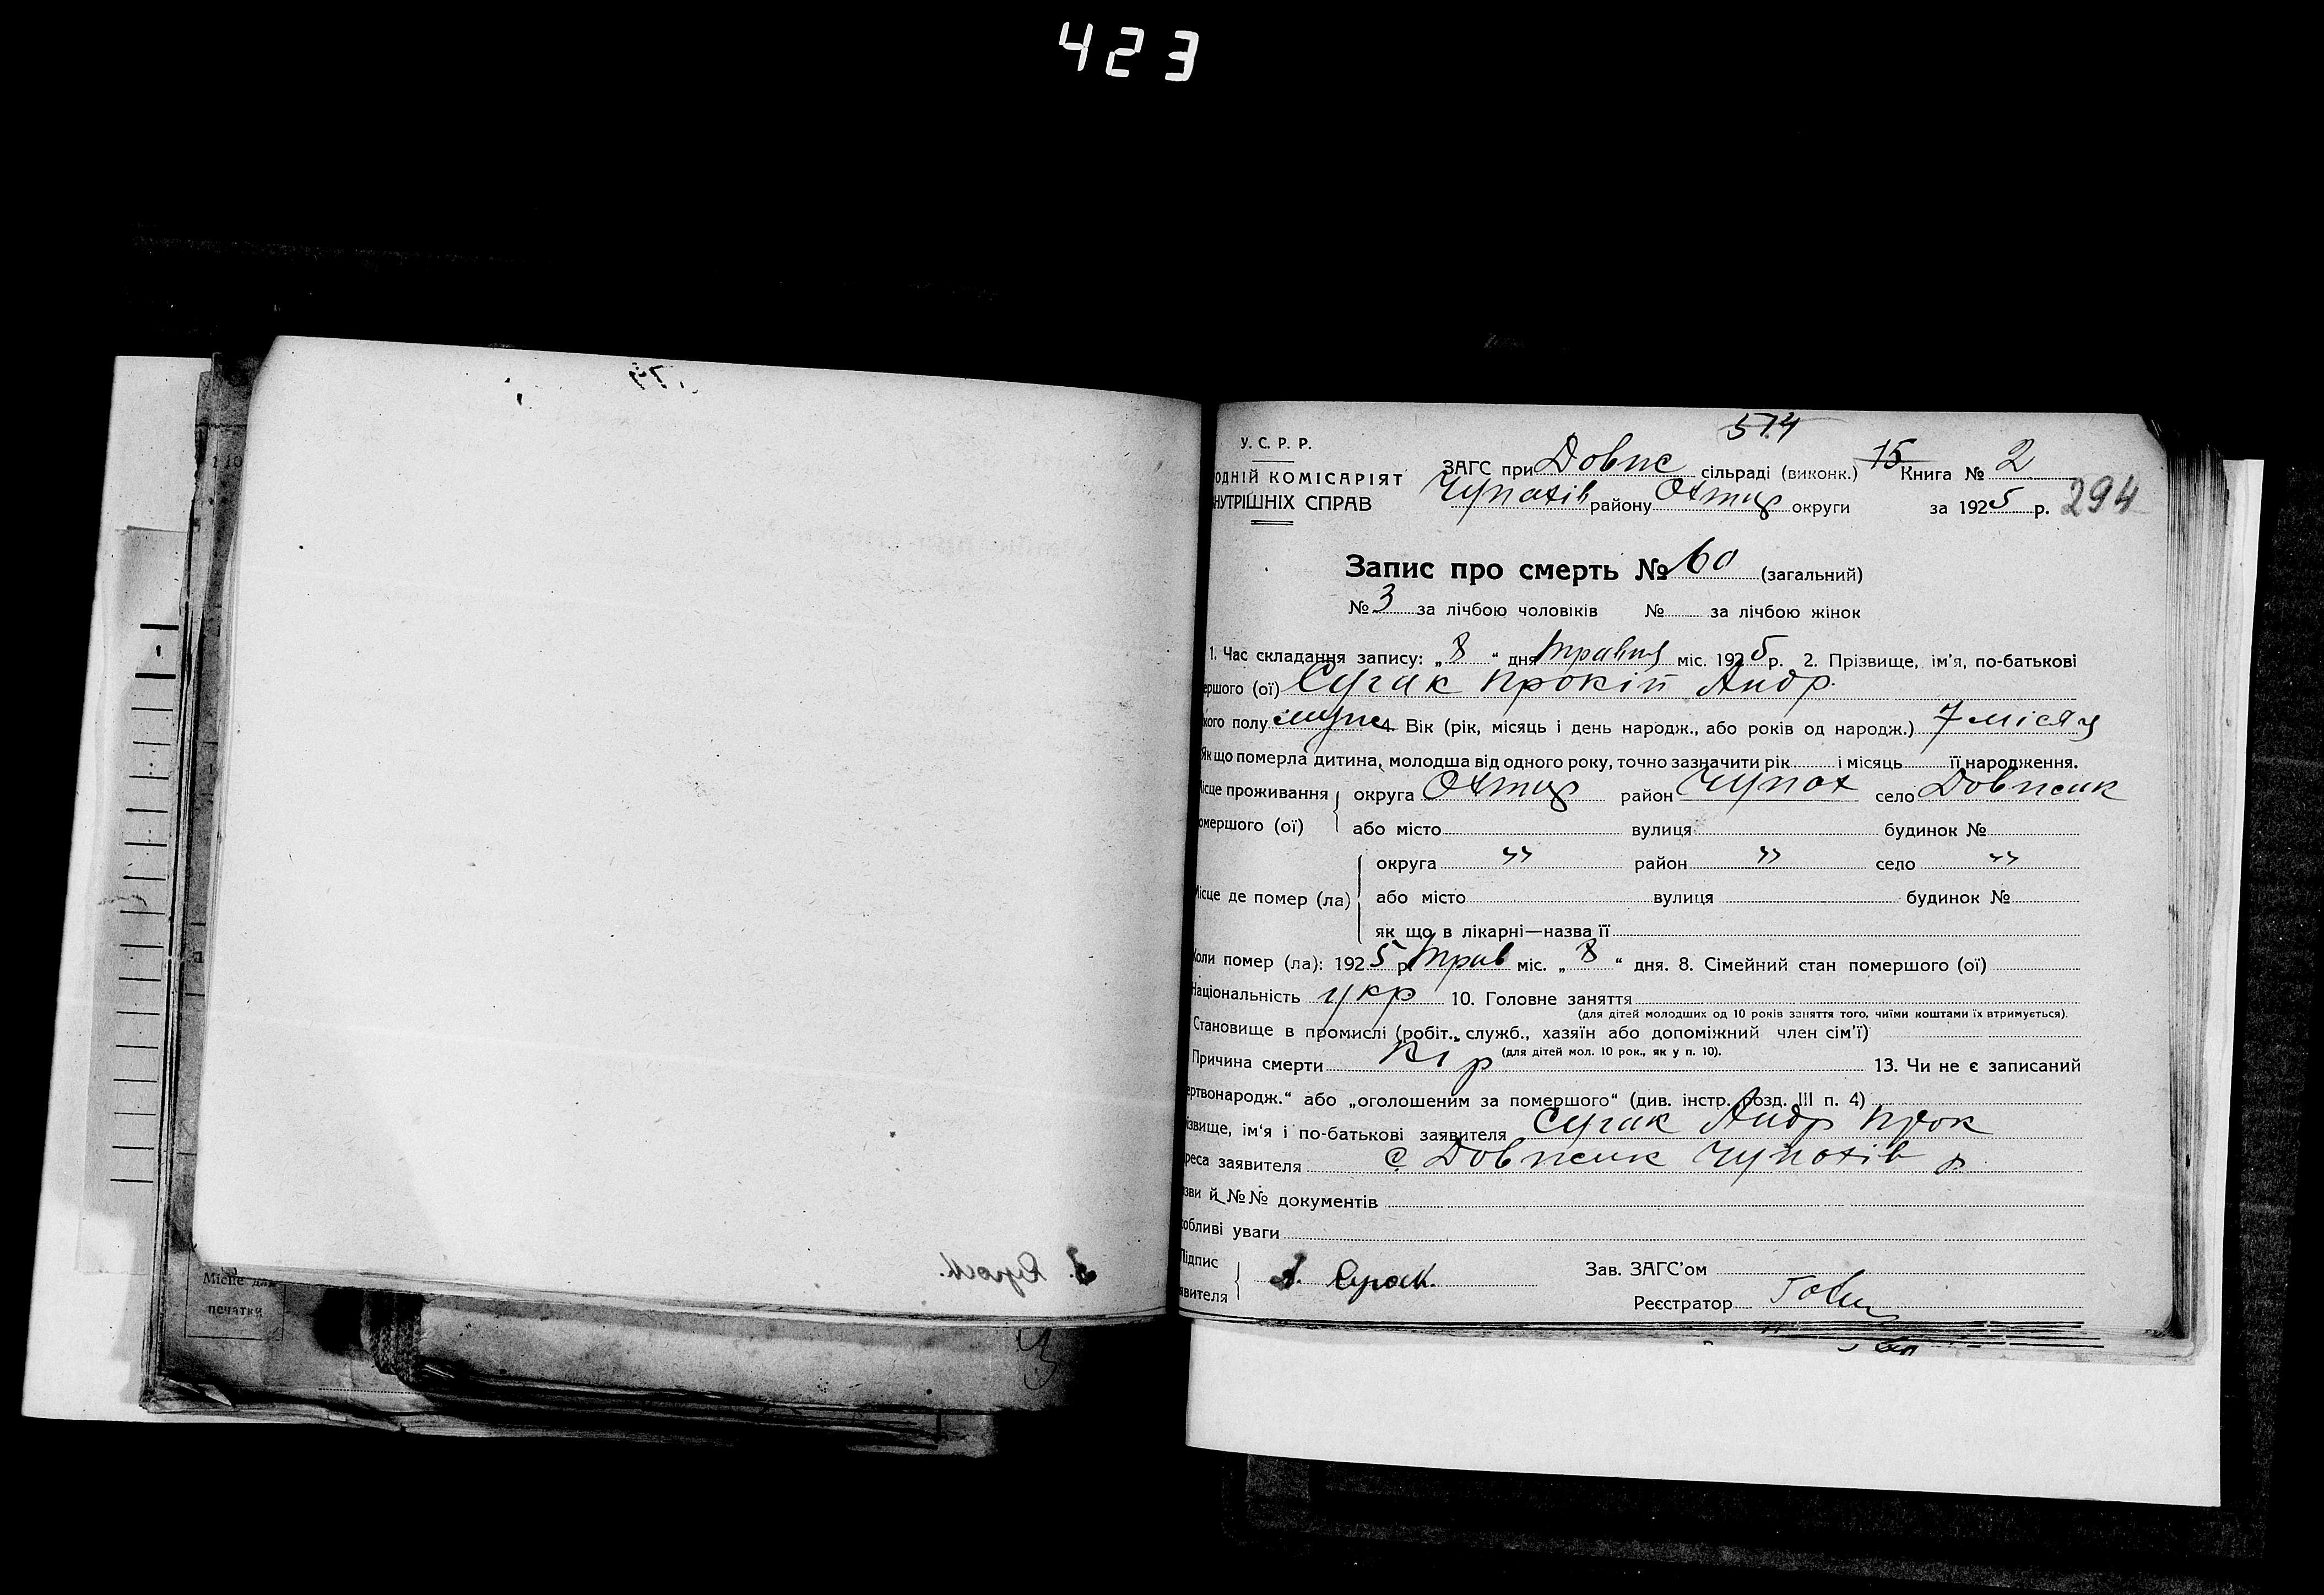 423
514
У. С. Р. Р.
ОДНІЙ КОМІСАРІЯТ
НУТРІШНІХ СПРАВ
ЗАГС при Довже сільраді (виконк.) 15 Книга № 2
Чупахів району Охтир округи за 1925 р. 294
Запис про смерть № 60 (загальний)
№ 3 за лічбою чоловіків № за лічбою жінок
1. Час складання запису: „8“ дня травня міс. 1925 р. 2. Прізвище, ім’я, по-батькові
ершого (ої) Сугак Прокіп Андр.
кого полу муж 4. Вік (рік, місяць і день народж., або років од народж.) 7 місяц
Як що померла дитина, молодша від одного року, точно зазначити рік і місяць її народження.
ісце проживання округа Охтир район Чупах село Довжик
омершого (ої) або місто вулиця будинок №
округа " район " село "
Місце де помер (ла) або місто вулиця будинок №
як що в лікарні—назва її
Коли помер (ла): 1925 р. трав міс. „8“ дня. 8. Сімейний стан помершого (ої)
Національність укр 10. Головне заняття
(для дітей молодших од 10 років заняття того, чиїми коштами їх втримується).
Становище в промислі (робіт., служб., хазяїн або допоміжний член сім’ї)
(для дітей мол. 10 рок., як у п. 10).
Причина смерти кір 13. Чи не є записаний
ертвонародж.“ або „оголошеним за помершого“ (див. інстр. розд. III п. 4)
ізвище, ім‘я і по-батькові заявителя Сугак Андр Прок
реса заявителя с Довжик Чупахів р
зви й №№ документів
собливі уваги
Підпис
явителя
Зав. ЗАГС’ом
Реєстратор
Місце для
печатки